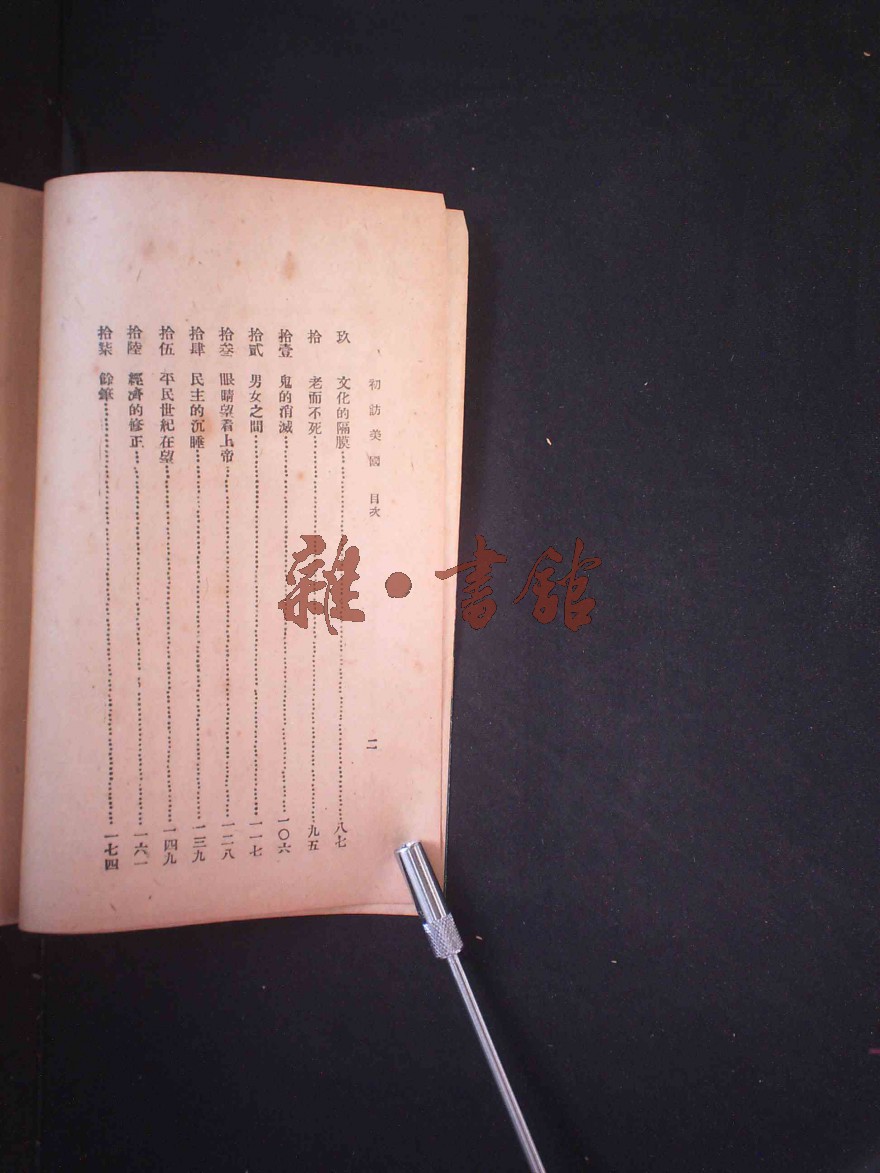 初訪美國 目次 二
玖 文化的隔膜 八七
拾 老而不死 九五
拾壹 鬼的消滅 一〇六
拾貳 男女之間 一一七
拾叁 眼睛望着上帝 一二八
拾肆 民主的沉睡 一三九
拾伍 平民世紀在望 一四九
拾陸 經濟的修正 一六一
拾柒 餘筆 一七四
雜·書館